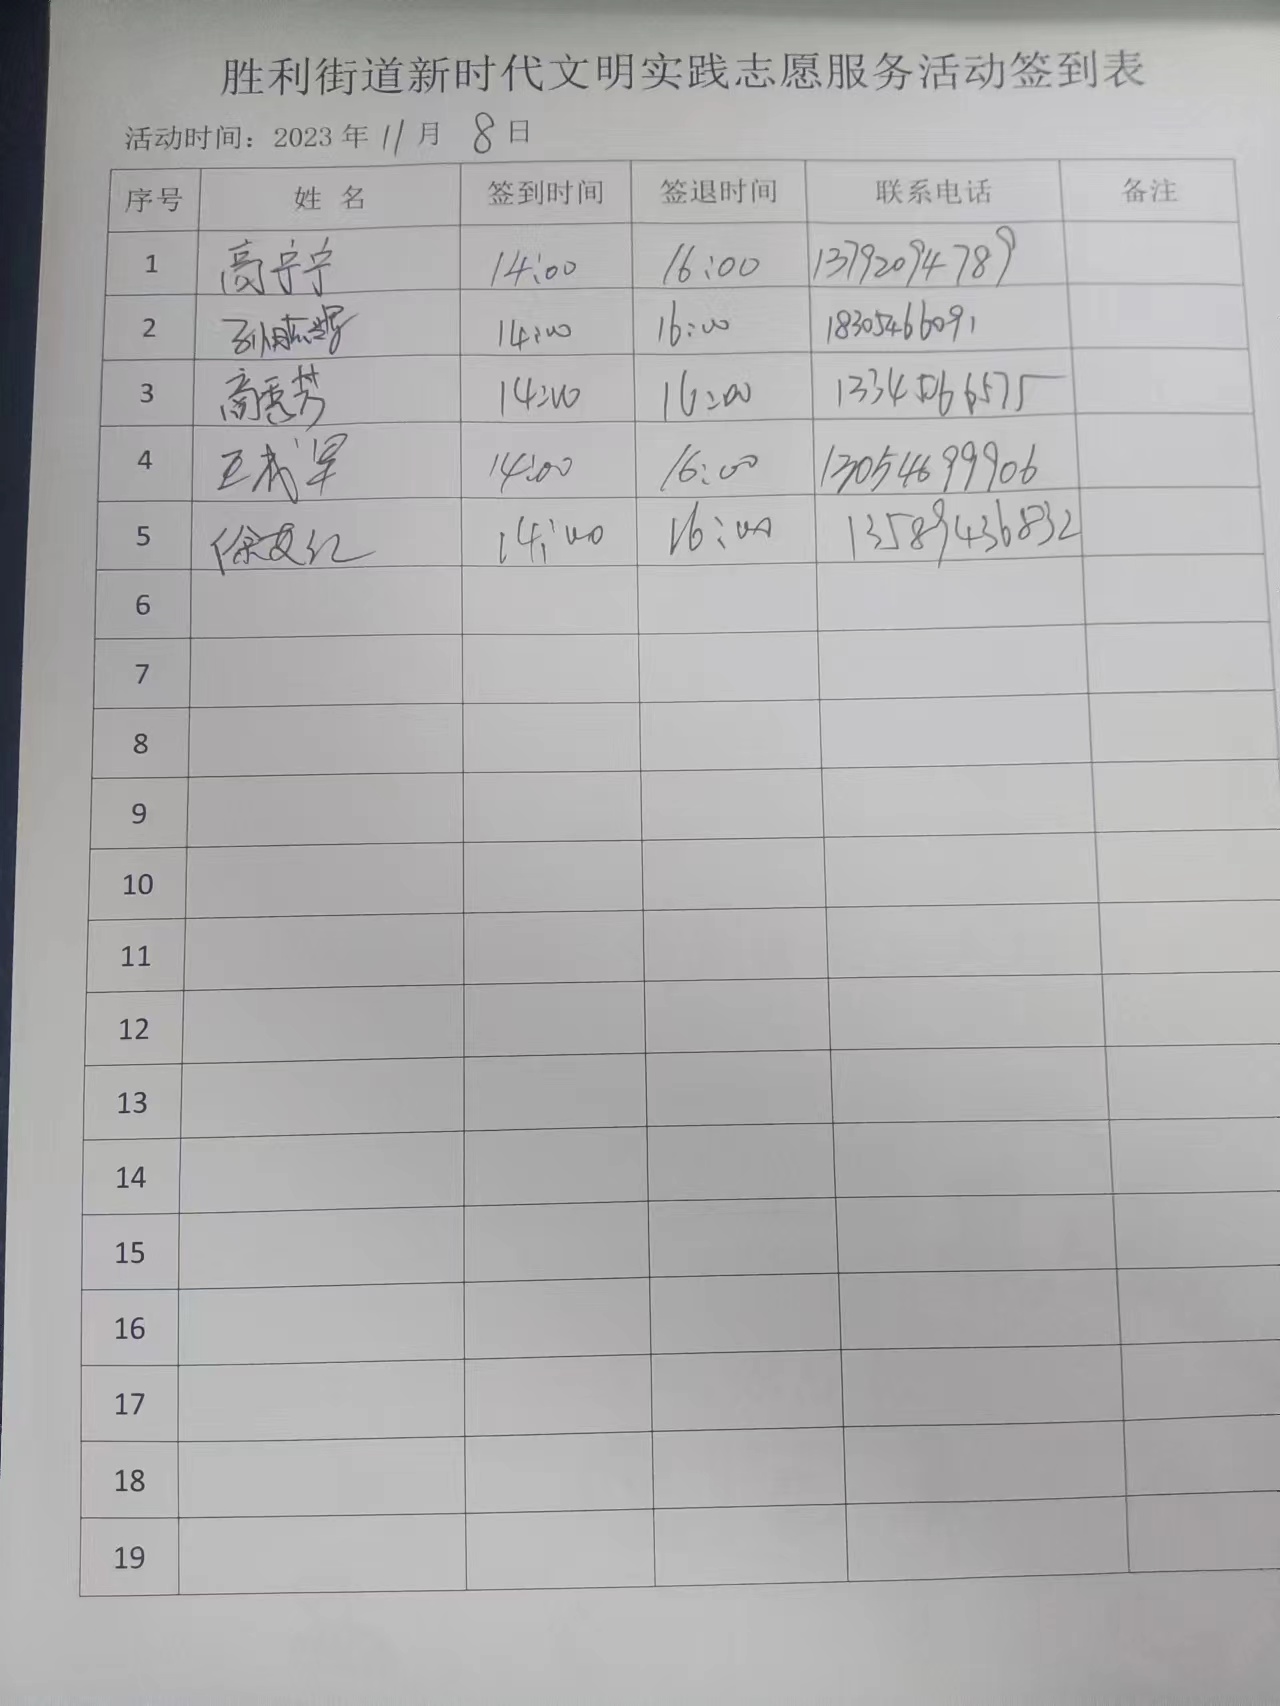 胜利街道新时代文明实践志愿服务活动签到表
活动时间：2023 年 11 月 8 日
序号 姓 名 签到时间 签退时间 联系电话 备注
1 高宁宁 14:00 16:00 13792094789
2 14:00 16:00 18305466091
3 高秀芳 14:00 16:00 13345066575
4 王成军 14:00 16:00 13054699906
5 徐文红 14:00 16:00 13589436832
6
7
8
9
10
11
12
13
14
15
16
17
18
19